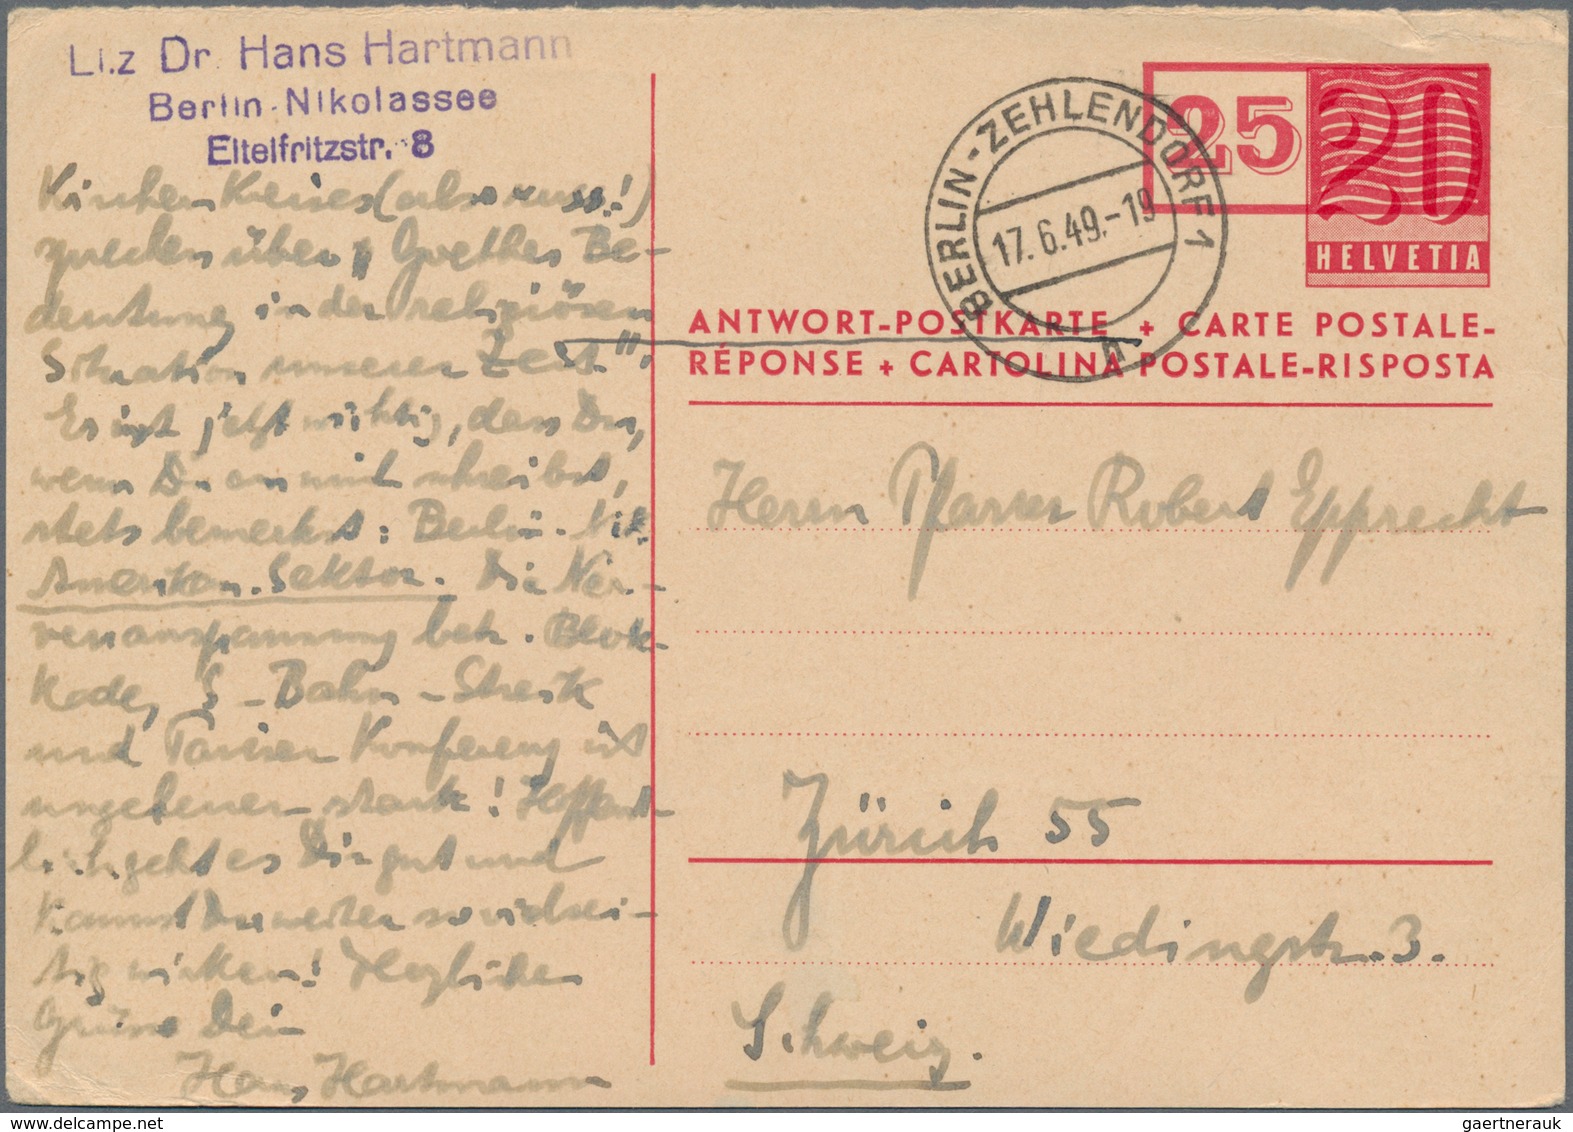 Liz Dr. Hans Hartmann
Berlin-Nikolassee
Eitelfritzstr. 8
Kirchenkreises (also
sprechen über „Goethes Be-
deutung in der religiösen
Situation unserer Zeit".
Es ist jetzt wichtig, dass Du,
wenn Du an mich schreibst,
stets bemerkst: Berlin-Nik.
Amerikan. Sektor. Die Ner-
venanspannung betr. Blok-
kade, S-Bahn-Streik
und Pariser Konferenz ist
ungeheuer stark! Hoffent-
lich geht es Dir gut und
kannst Du weiter so vielsei-
tig wirken! Herzliche
Grüsse Dein
Hans Hartmann
BERLIN-ZEHLENDORF 1
17.6.49.-19
h
25
20
HELVETIA
ANTWORT-POSTKARTE + CARTE POSTALE-
RÉPONSE + CARTOLINA POSTALE-RISPOSTA
Herrn Pfarrer Robert Epprecht
Zürich 55
Wiedingstr. 3.
Schweiz.
gaertnerauk @ delcampe.net